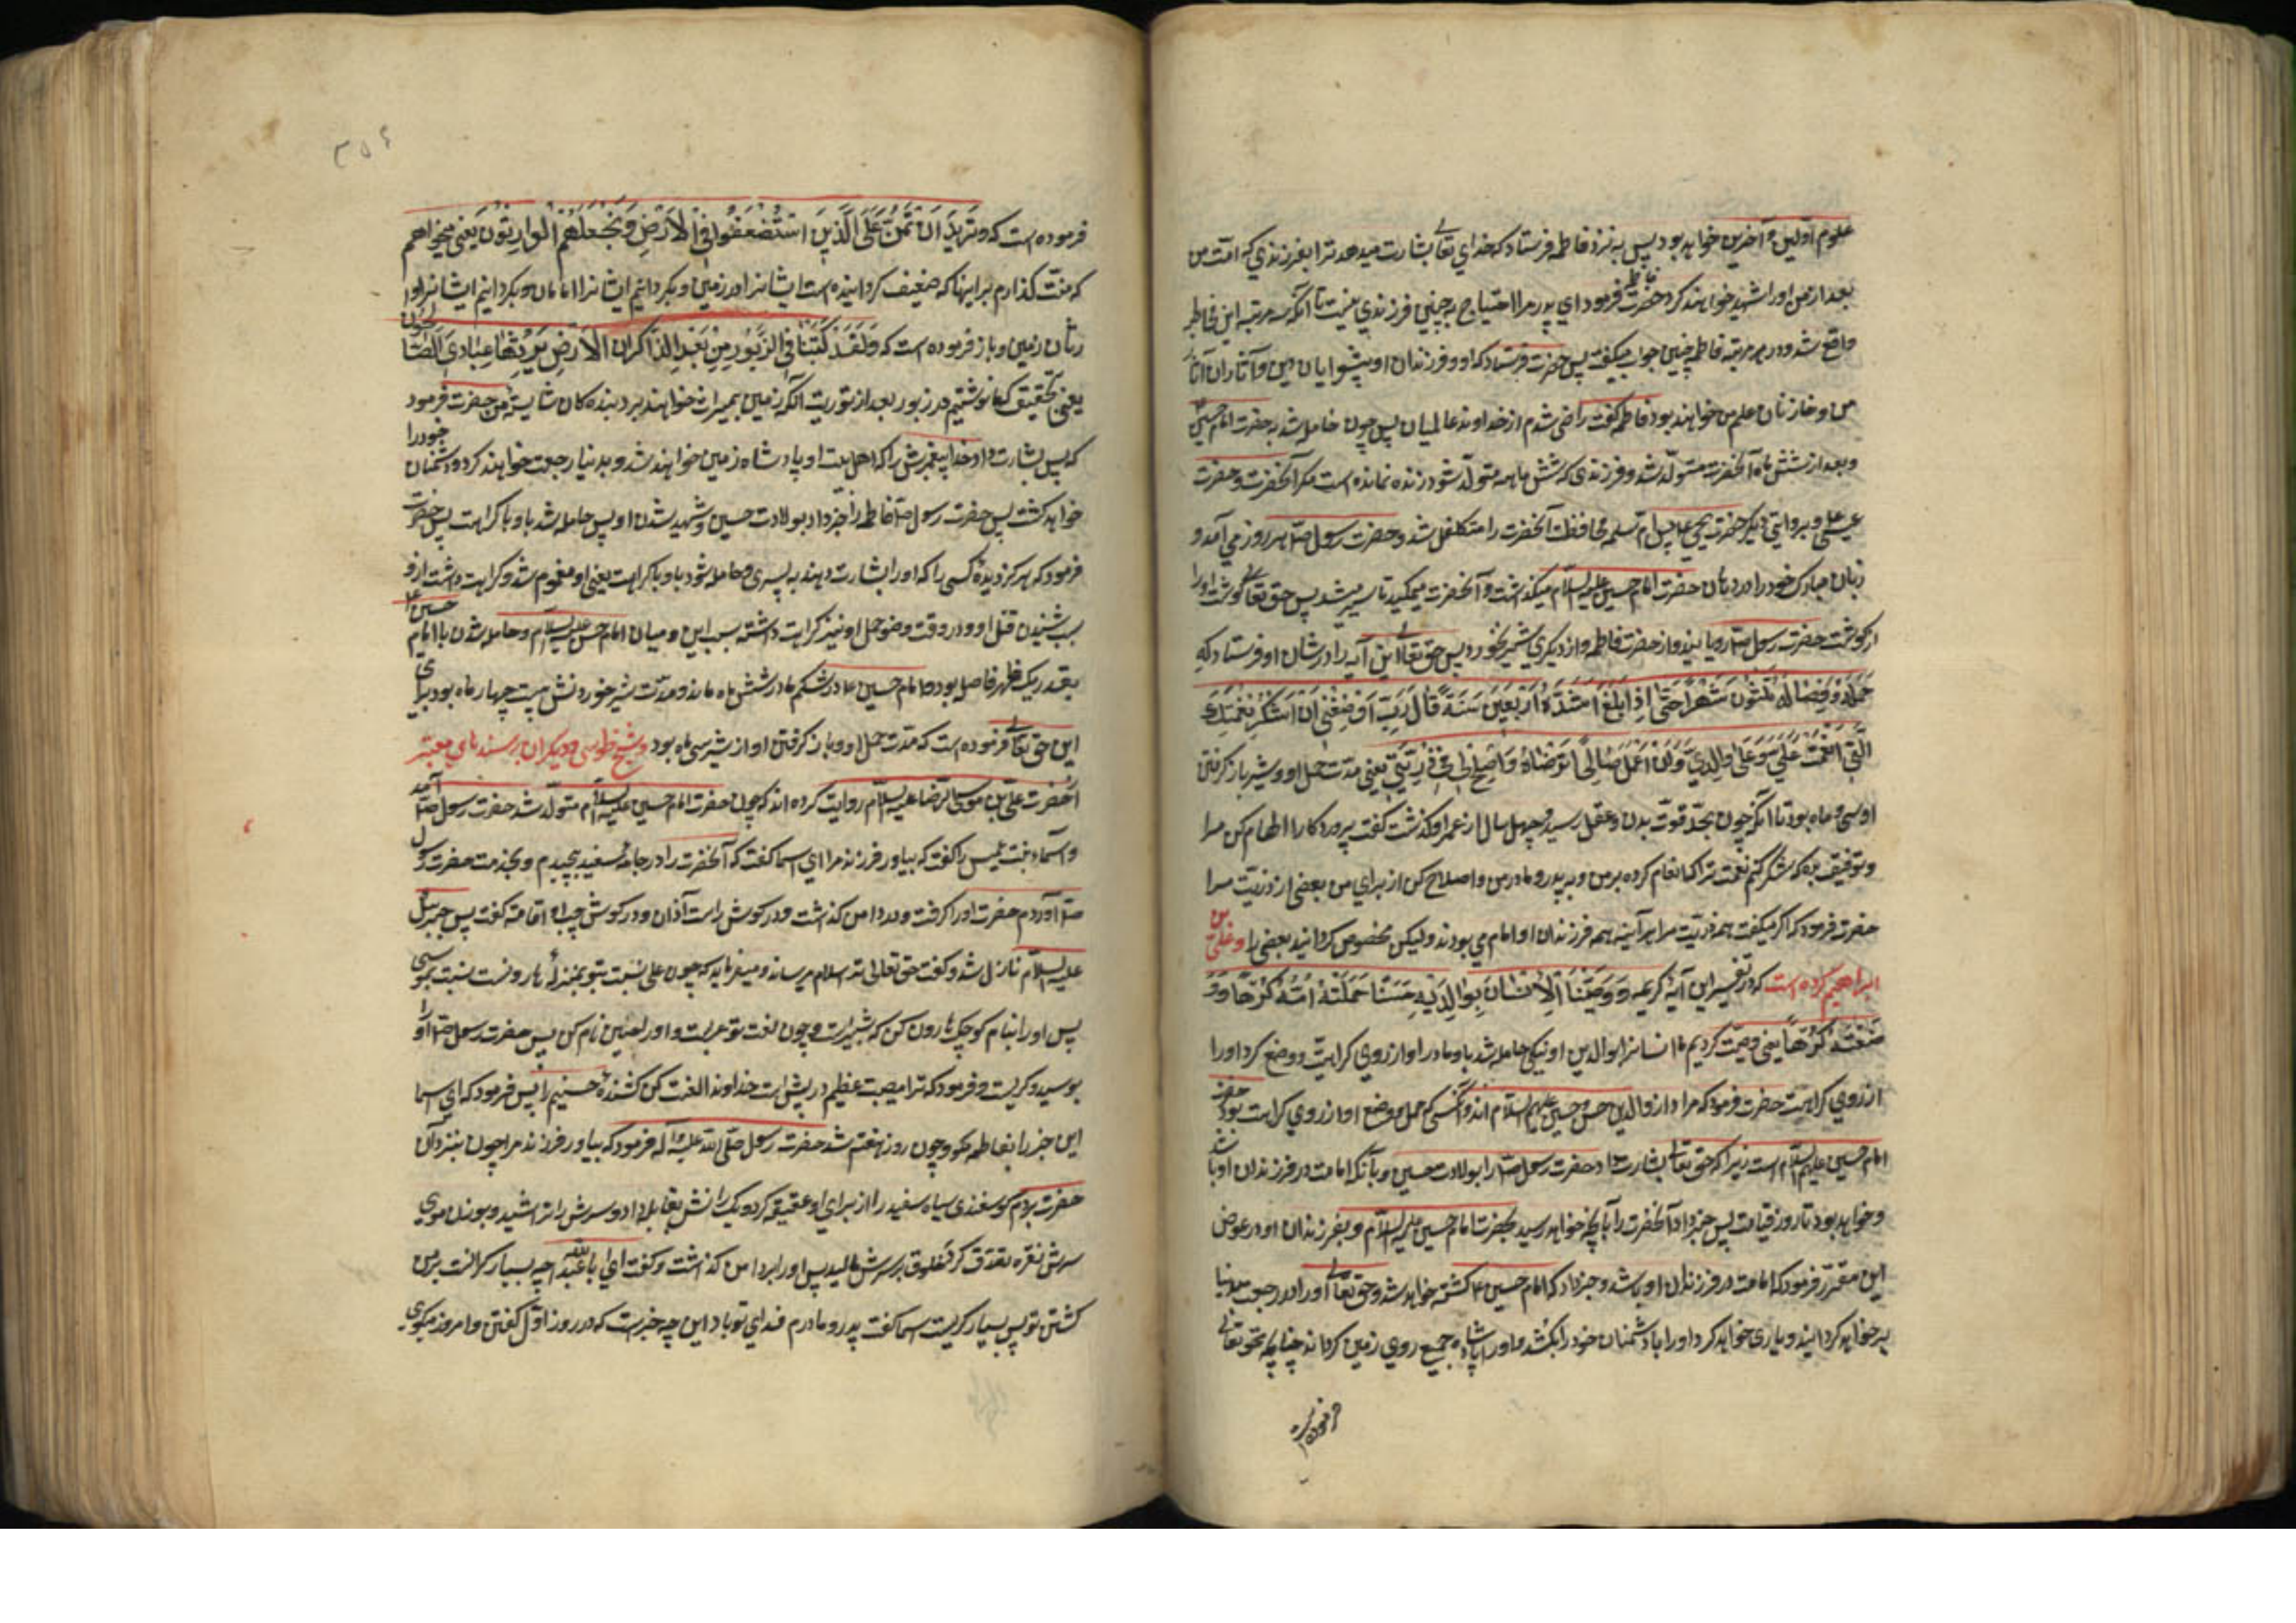 علوم اولین و آخرین خواهد بود پس به نزد فاطمه فرستاد که خدای تعالی بشارت میدهد ترا بفرزندی که امت من
بعد از من او را شهید خواهند کرد حضرت فاطمه فرمود ای پدر مرا احتیاج به چنین فرزندی نیست تا آنکه سه مرتبه این مخاطبه
واقع شد و در هر مرتبه فاطمه چنین جواب میگفت پس حضرت فرستاد که او و فرزندان او پیشوایان دین و آثار
من و خازنان علم من خواهند بود فاطمه گفت راضی شدم از خداوند عالمیان پس چون حامله شد به حضرت امام حسین
و بعد از شش ماه آنحضرت متولد شد و فرزندی که شش ماهه متولد شود زنده نمانده است مگر آنحضرت و حضرت
عیسی و بروایتی دیگر حضرت یحیی پس ام سلمه محافظت آنحضرت را متکفل شد و حضرت رسول ص هر روز می آمد و
زبان مبارک خود را در دهان حضرت امام حسین علیه السلام میگذاشت و آنحضرت میمکید تا سیر میشد پس حق تعالی گوشت او را
از گوشت حضرت رسول ص رویانید و از حضرت فاطمه و از دیگری شیر نخورد پس حق تعالی این آیه را در شان او فرستاد که
حمله و فصاله ثلثون شهرا حتی اذا بلغ اشده اربعین سنة قال رب اوزعنی ان اشکر نعمتک
التی انعمت علی و علی والدی و ان اعمل صالحا ترضاه و اصلح لی فی ذریتی یعنی مدت حمل او و شیر باز گرفتن
او سی ماه بود تا آنکه چون بحد قوت بدن و عقل رسید و چهل سال از عمر او گذشت گفت پروردگارا الهام کن مرا
و توفیق بده که شکر کنم نعمت ترا که انعام کرده بر من و بر پدر و مادر من و اصلاح کن از برای من بعضی از ذریت مرا
حضرت فرمود که اگر میگفت همه ذریت مرا هر آینه همه فرزندان او امام می بودند ولیکن مخصوص گردانید بعضی را و علی بن
ابراهیم کرده است که در تفسیر این آیه کریمه و وصینا الانسان بوالدیه حسنا حملته امه کرها و و
ضعته کرها یعنی وصیت کردیم ما انسانرا بوالدین او نیکی حامله شد باو مادر او از روی کراهیت و وضع کرد او را
از روی کراهیت حضرت فرمود که مراد از والدین حسن و حسین علیهم السلام اند و آنکسی که حمل و وضع او از روی کراهت بود حضرت
امام حسین علیه السلام است زیرا که حق تعالی بشارت داد حضرت رسول ص را بولادت حسین و بآنکه امامت در فرزندان او باشد
و خواهد بود تا روز قیامت پس خبر داد آنحضرت را بآنچه خواهد رسید بحضرت امام حسین علیه السلام و بفرزندان او در عوض
این مقرر فرمود که امامت در فرزندان او باشد و خبر داد که امام حسین ع کشته خواهد شد و حق تعالی او را در رجعت بدنیا
بر خواهد گردانید و یاری خواهد کرد او را با دشمنان خود را بکشد و او را پادشاه جمیع روی زمین گرداند چنانچه حق تعالی
فرموده است
۳۵۶
فرموده است که و نرید ان نمن علی الذین استضعفوا فی الارض و نجعلهم الوارثون یعنی میخواهم
که منت گذارم بر اینها که ضعیف گردانیده است ایشانرا در زمین و بگردانیم ایشانرا امامان و بگردانیم ایشانرا وا
رثان زمین و باز فرموده است که و لقد کتبنا فی الزبور من بعد الذکر ان الارض یرثها عبادی الصالحون
یعنی بتحقیق که ما نوشتیم در زبور بعد از توریت آنکه زمین بمیراث خواهند برد بنده کان شایسته من حضرت فرمود
که پس بشارت داد خدا پیغمبرش را که اهل بیت او پادشاه زمین خواهند شد و بدنیا رجعت خواهند کرد و دشمنان خود را
خواهد کشت پس حضرت رسول ص فاطمه را خبر داد بولادت حسین و شهید شدن او پس حامله شد باو با کراهت پس حضرت
فرمود که هرگز دیدهٔ کسی را که او را بشارت دهند به پسری و حامله شود باو با کراهت یعنی او مغموم شد و کراهت داشت از و
بسبب شنیدن قتل او و در وقت وضع حمل او نیز کراهت داشته بسبب این و میان امام حسن علیه السلام و حامله شدن بامام حسین ع
بقدر یک طهر فاصله بود و امام حسین ع در شکم مادر شش ماه ماند و مدت شیر خوردنش بیست چهار ماه بود برای
این حق تعالی فرموده است که مدت حمل او و باز گرفتن او از شیر سی ماه بود و شیخ طوسی و دیگران بسندهای معتبر
از حضرت علی بن موسی الرضا علیه السلام روایت کرده اند که چون حضرت امام حسین علیه السلام متولد شد حضرت رسول ص آمد
و اسماء بنت عمیس را گفت که بیاور فرزند مرا ای اسما گفت که آنحضرت را در جامه سفید پیچیدم و بخدمت حضرت رسول
ص آوردم حضرت او را گرفت و در دامن گذشت و در گوش راست آذان و در گوش چپ او اقامه گفت پس جبرئیل
علیه السلام نازل شد و گفت حق تعالی ترا سلام میرساند و میفرماید که چون علی نسبت بتو بمنزلهٔ هارونست نسبت بموسی
پس او را بنام کوچک هارون کن که شبیر است و چون لغت تو عربست و او را حسین نام کن پس حضرت رسول ص او را
بوسید و گریست و فرمود که ترا مصیبت عظیم در پیش است خداوندا لعنت کن کشندهٔ حسینم را پس فرمود که ای اسما
این خبر را بفاطمه مگو و چون روز هفتم شد حضرت رسول صلی الله علیه و آله فرمود که بیاور فرزند مرا چون بنزد آن
حضرت بردم گوسفندی سیاه سفید را از برای او عقیقه کرد و یک رانش بقابله داد و سرش را تراشید و بوزن موی
سرش نقره تصدق کرد و خلوق بر سرش مالید پس او را بر دامن گذاشت و گفت ای ابا عبدالله چه بسیار گرانست بر من
کشتن تو پس بسیار گریست اسما گفت پدر و مادرم فدای تو باد این چه خبر است که در روز اول گفتی و امروز میگوی